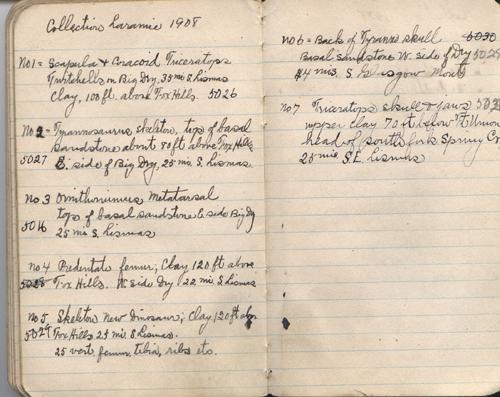 Collection Laramie 1908
No 1 = Scapula & Coracoid Triceratops
Twitchells on Big Dry, 35 mi S. Lismas
Clay, 100 ft. above Fox Hills. 5026
No 2 = Tyrannosaurus skeleton, top of basal
sandstone about 80 ft above Fox Hills
5027 E. side of Big Dry, 25 mis. S. Lismas.
No 3 Ornithomimus Metatarsal
top of basal sandstone E side Big Dry
5016 25 mis S. Lismas
No 4 Predentate femur; Clay 120 ft above
5028 Fox Hills. W. Side Dry 22 mis S. Lismas
No 5 Skeleton New Dinosaur; Clay 120 ft abv
5029 Fox Hills 25 mis S. Lismas.
25 vert femur tibia, ribs etc.
No 6 = Back of Tyranno skull 5030
Basal Sandstone W. side of Dry 5029
mis. S. Glasgow Mont
No 7 Triceratops skull & jaws
upper clay 70 ft below Ft Union
head of South fork Spring Cr
25 mis S.E. Lismas